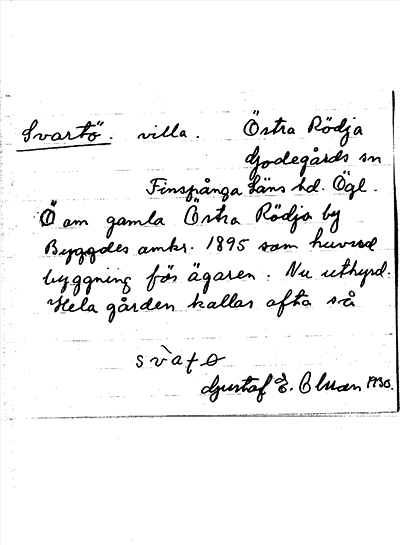 Svartö. villa. Östra Rödja
Godegårds sn
Finspånga läns hd. Ögl.
Ö om gamla Östra Rödja by
Byggdes omkr. 1895 som huvud
byggning för ägaren. Nu uthyrd.
Hela gården kallas ofta så
Gustaf E. Olson 1930.